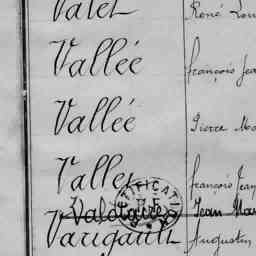 Valet René Lou
Vallée françois Jea
Vallée Pierre Ma
Valley françois Jean
Valotaire Jean Mar
Varigault Augustin